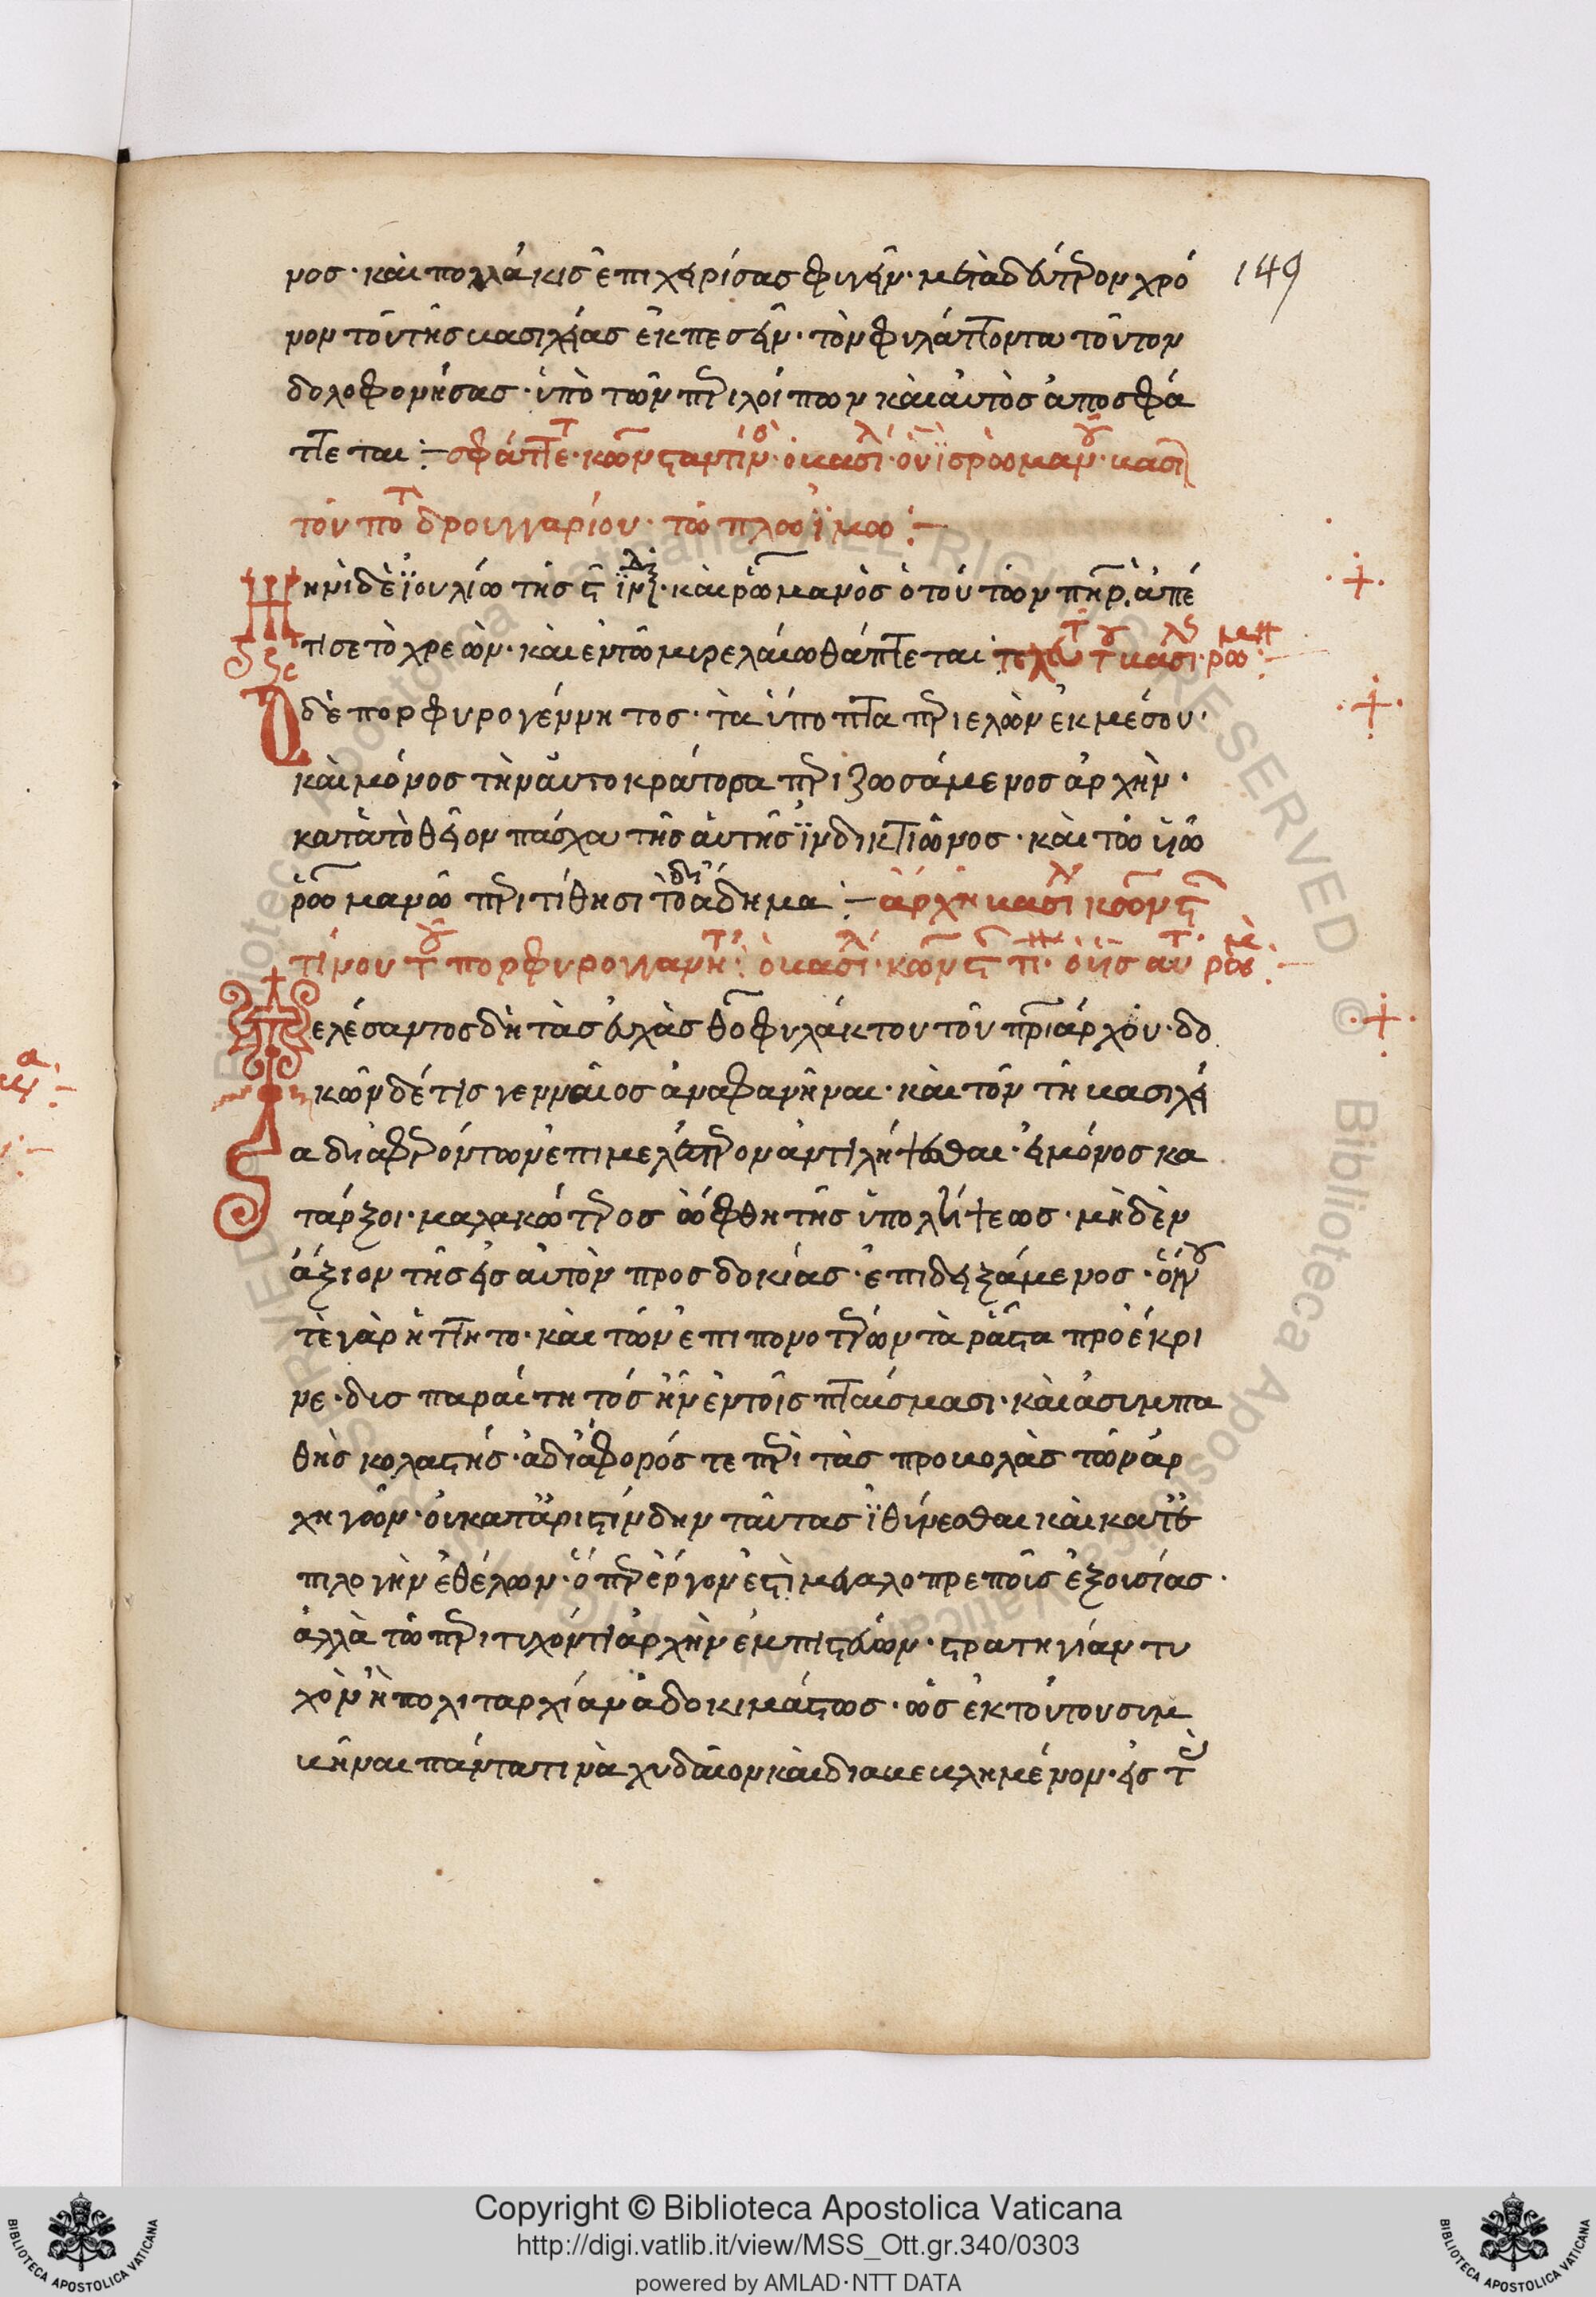 149
νος· καὶ πολλάκις ἐπιχειρίσας φυγεῖν· μετὰ δεύτερον χρό
νον τοῦ τῆς βασιλείας ἐκπεσεῖν· τὸν φυλάττοντα τοῦτον
δολοφονήσας· ὑπὸ τῶν περιλοίπων καὶ αὐτὸς ἀποσφά
ττεται :– σφάττετ· κωνσταντῖν· ὁ βασιλ· ὁ υἱὸς ῥωμαν· βασι
τοῦ ποτ δρουγγαρίου· τῶ πλωΐμω :–
Μηνὶ δὲ ἰουλίω τῆς ϛ ἰνδ· καὶ ῥωμανὸς ὁ τούτων πηρ, ἀπέ
τισε τὸ χρεών· καὶ ἐν τῶ μυρελαίω θάπτεται
Ὁ δὲ πορφυρογέννητος· τὰ ὕποπτα περιελὼν ἐκ μέσου·
καὶ μόνος τὴν αὐτοκράτορα περιζωσάμενος ἀρχήν·
κατὰ τὸ θεῖον πάσχα τῆς αὐτῆς ἰνδικτιῶνος· καὶ τῶ υἱῶ
ῥωμανῶ περιτίθησι τὸ διάδημα :– ἀρχὴ βασιλ κωνσ
τίνου τ πορφυρογγανητ : ὁ βασιλ· κωνσ π· ὁ υἱὸς αὐτ ῥωμ :–
Τελέσαντος δὴ τὰς εὐχὰς θεοφυλάκτου τοῦ πριάρχου· δο
κῶν δέ τις γενναῖος ἀναφανῆναι· καὶ τῶν τῆ βασιλεί
α διαφερόντων ἐπιμελέστερον ἀντιλήψεσθαι· εἰ μόνος κα
τάρξοι· μαλακώτερος ὤφθη τῆς ὑπολήψεως· μηδὲν
ἄξιον τῆς εἰς αὐτὸν προσδοκίας· ἐπιδειξάμενος· οἴνου
τὲ γὰρ ἥττητο· καὶ τῶν ἐπιπονοτέρων τὰ ῥᾶστα προέκρι
νε· δυσπαραίτητός ἦν ἐν τοῖς πταίσμασι· καὶ ἀσυμπα
θὴς κολαστής· ἀδιάφορός τε περὶ τὰς προβολὰς τῶν ἀρ
χηγῶν· οὐ κατ' ἀριστίνδην ταύτας ἰθύνεσθαι καὶ κατ' ἐ
πιλογὴν ἐθέλων· ὅπερ ἔργον ἐστὶ μεγαλοπρεποῦς ἐξουσίας·
ἀλλὰ τῶ περιτυχόντι ἀρχὴν ἐμπιστεύων· στρατηγίαν τυ
χὸν ἢ πολιταρχίαν ἀδοκιμάστως· ὡς ἐκ τούτου συμ
βῆναι πάντα τινὰ χυδαῖον καὶ διαβεβλημένον· εἰς τ
Copyright © Biblioteca Apostolica Vaticana
http://digi.vatlib.it/view/MSS_Ott.gr.340/0303
powered by AMLAD·NTT DATA
BIBLIOTECA APOSTOLICA VATICANA
BIBLIOTECA APOSTOLICA VATICANA